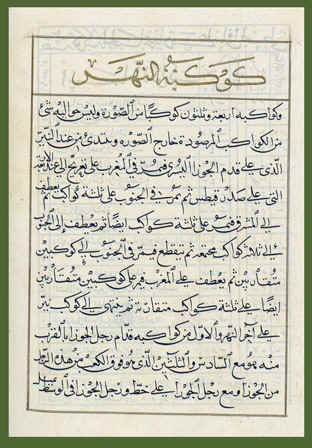 كوكبة النهر
وكواكبه اربعة وثلثون كوكبا من الصورة وليس حواليه شئ
من الكواكب المرصودة خارج الصورة ويبتدئ من عند النير
الذى على قدم الجوزا اليسرى فيمر فى المغرب على تعريج الى عند الاربعة
التى على صدر قيطس ثم يمر فى الجنوب على ثلثة كواكب ثم ينعطف
الى المشرق فيمر على ثلثة كواكب ايضا ثم ينعطف الى الجنوب
الى ثلاثة كواكب مجتمعة ثم ينقطع فيمر فى الجنوب الى كوكبين
متقاربين ثم ينعطف على المغرب فيمر على كوكبين متقاربين
ايضا على ثلثة كواكب متقاربة ثم ينتهى الى كوكب نير
على آخر النهر والاول من كواكبه قدام رجل الجوزا بالقرب
منه بموضع السادس والثلثين الذى هو فوق الكعب من هذه الرجل
من الجوزا ومع رجل الجوزا على خط ورجل الجوزا فى الوسط